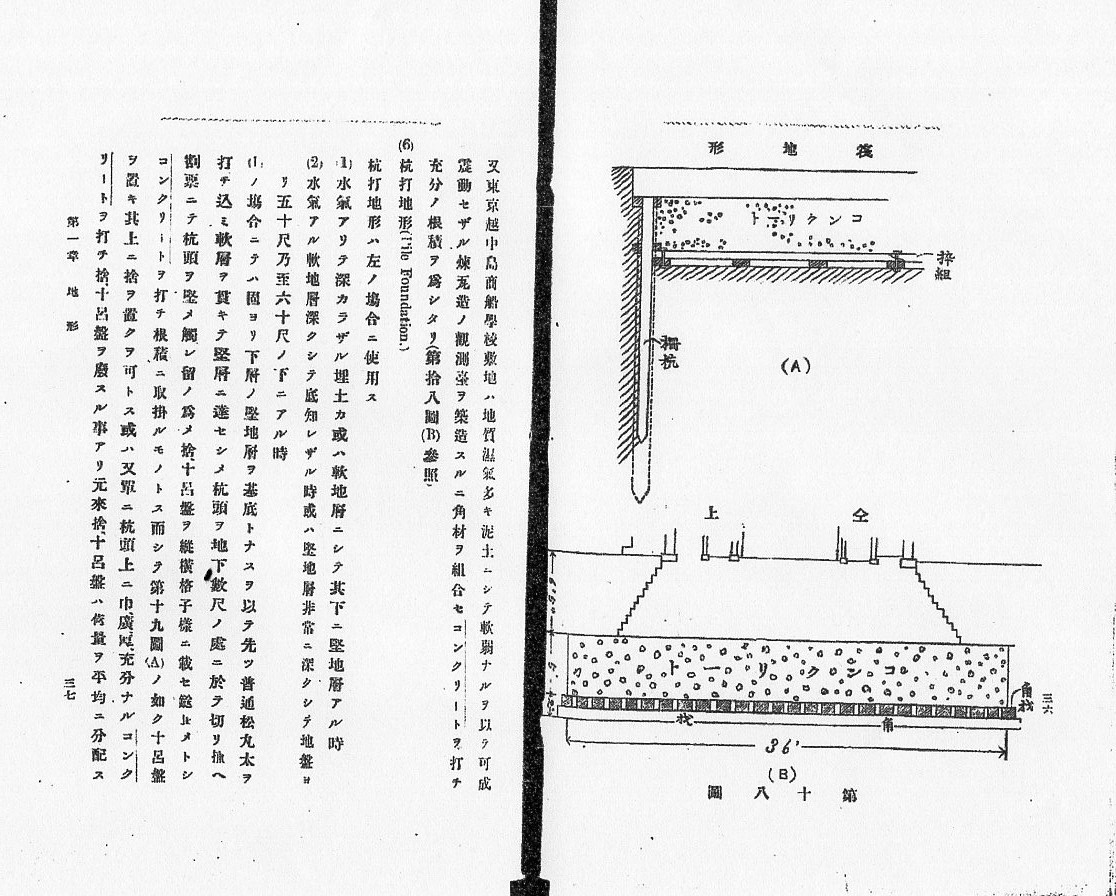 筏地形
コンクリート
枠組
柵杭
(A)
仝上
コンクリート
角材
角材
36'
(B)
第十八圖
三六
又東京越中島商船學校敷地ハ地質濕氣多キ泥土ニシテ軟弱ナルヲ以テ可成
震動セザル煉瓦造ノ觀測臺ヲ築造スルニ角材ヲ組合セコンクリートヲ打チ
充分ノ根積ヲ爲シタリ(第拾八圖(B)參照)
(6)杭打地形(Pile Foundation.)
杭打地形ハ左ノ塲合ニ使用ス
(1)水氣アリテ深カラザル埋土カ或ハ軟地層ニシテ其下ニ堅地層アル時
(2)水氣アル軟地層深クシテ底知レザル時或ハ堅地層非常ニ深クシテ地盤ヨ
リ五十尺乃至六十尺ノ下ニアル時
(1)ノ塲合ニテハ固ヨリ下層ノ堅地層ヲ基底トナスヲ以テ先ツ普通松丸太ヲ
打チ込ミ軟層ヲ貫キテ堅層ニ達セシメ杭頭ヲ地下數尺ノ處ニ於テ切リ揃ヘ
割栗ニテ杭頭ヲ堅メ觸レ留ノ爲メ捨十呂盤ヲ縱橫格子樣ニ載セ鎹止メトシ
コンクリートヲ打チ根積ニ取掛ルモノトス而シテ第十九圖(A)ノ如ク十呂盤
ヲ置キ其上ニ捨ヲ置クヲ可トス或ハ又單ニ杭頭上ニ巾廣厚充分ナルコンク
リートヲ打チ捨十呂盤ヲ廢スル事アリ元來捨十呂盤ハ荷量ヲ平均ニ分配ス
第一章 地形
三七